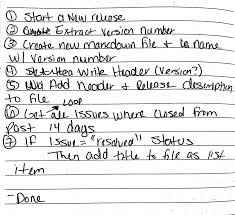 ① Start a New release
② Extract version number
③ Create new markdown file & name
w/ version number
④ Write Header (version?)
⑤ Add header & Release description
to file
Loop
⑥ Get all issues where closed from
Past 14 days
⑦ If Issue = "resolved" status
Then add title to file as list
item
- Done